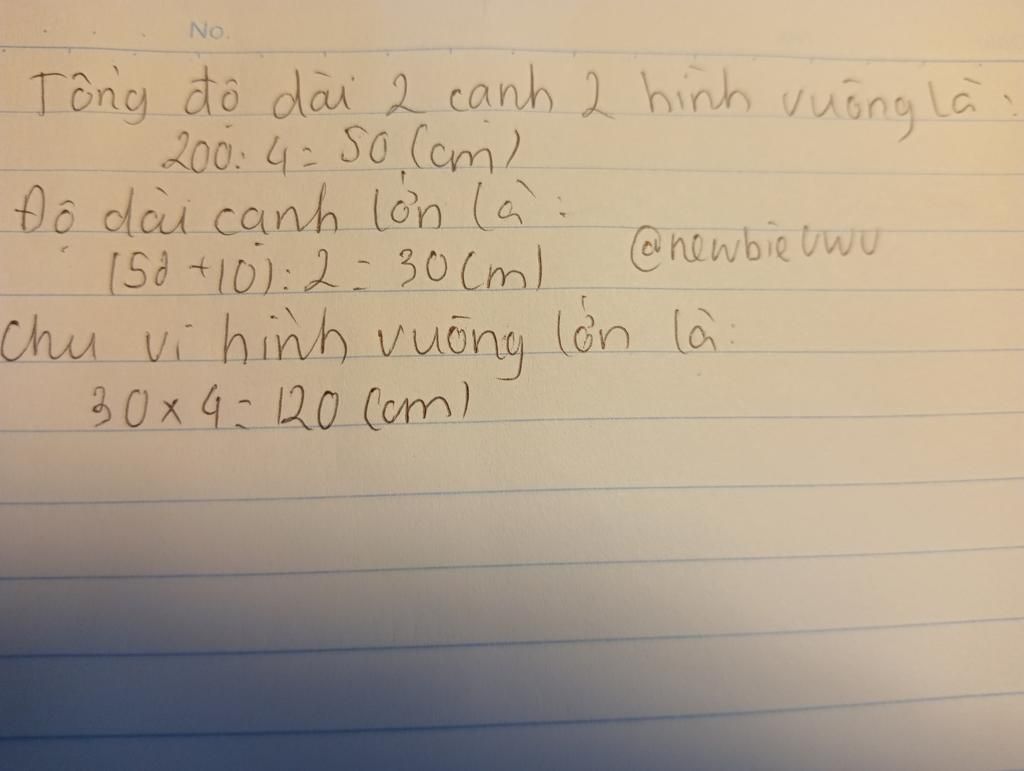 No.
Tổng độ dài 2 cạnh 2 hình vuông là:
200 : 4 = 50 (cm)
Độ dài cạnh lớn là:
(50 + 10) : 2 = 30 (cm)
@newbieUwU
Chu vi hình vuông lớn là:
30 x 4 = 120 (cm)